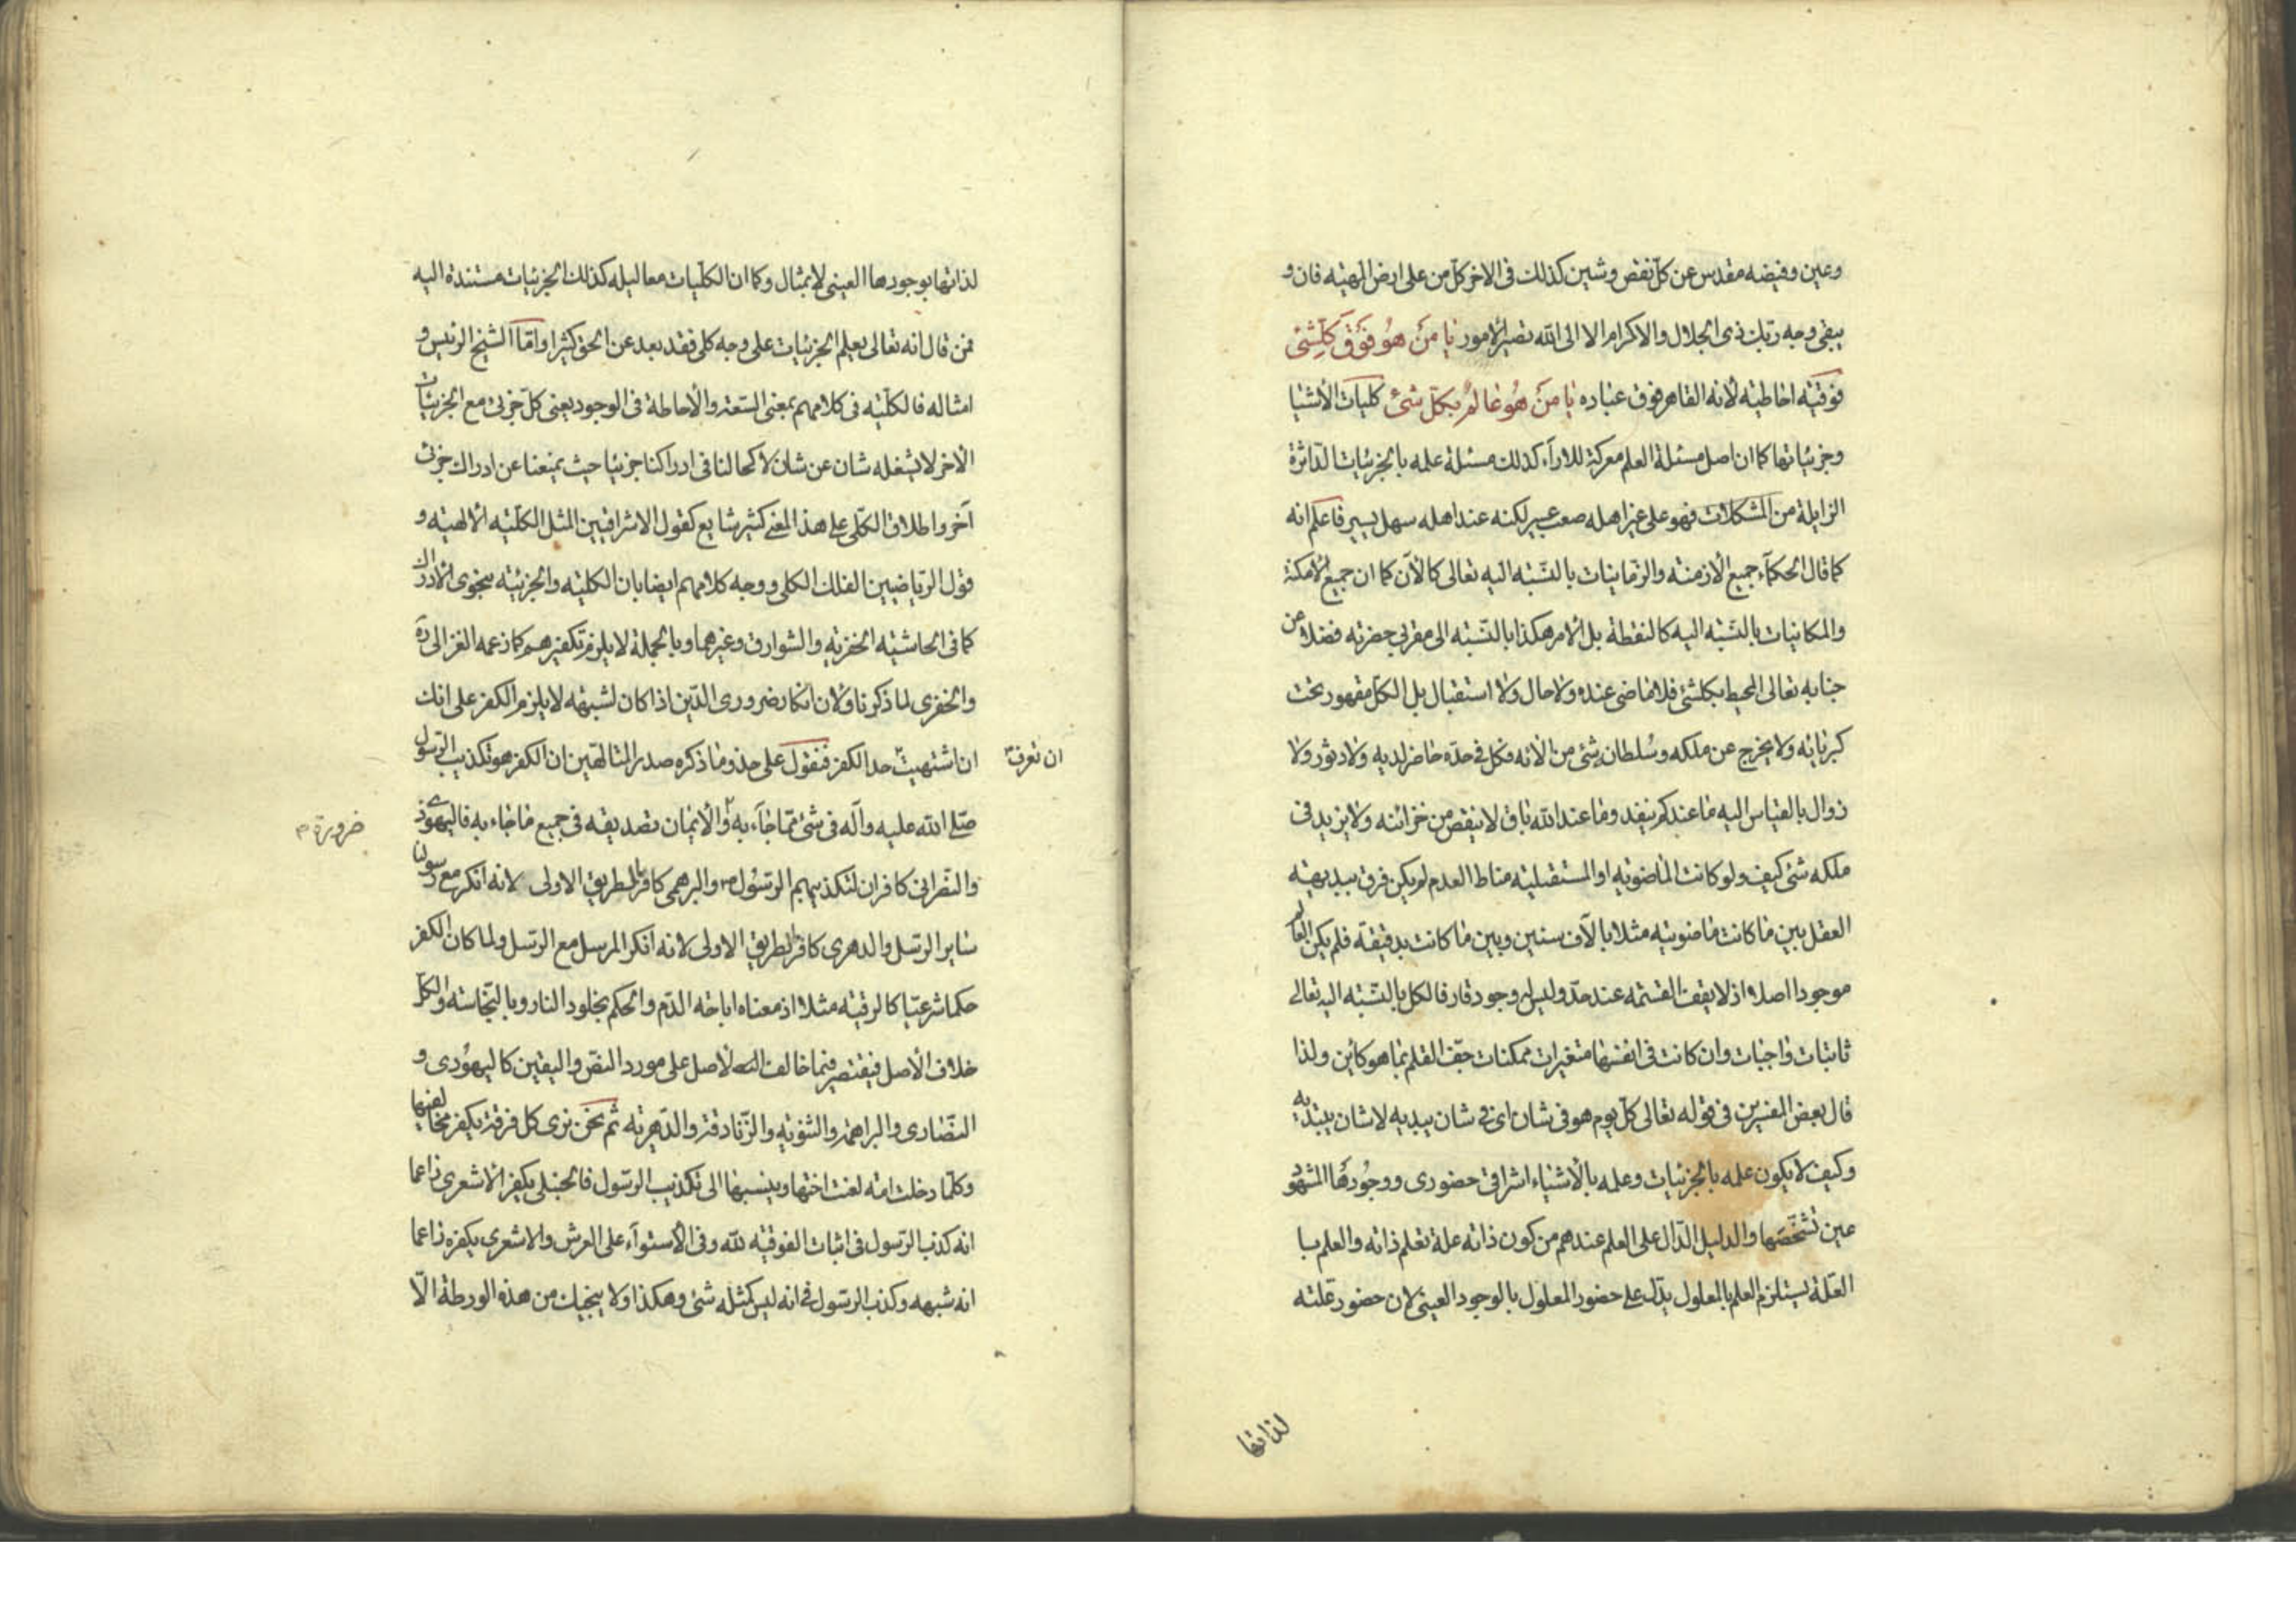 وعين وفيضه مقدس عن كل نقص وشين كذلك فى الاخر كل من على ارض المهيّه فان و
يبقى وجه ربّك ذى الجلال والاكرام الا الى الله تصير الامور يا مَنْ هُوَ فَوْقَ كلِّشَئ
فوقيّه احاطيه لأنه القاهر فوق عباده يا مَنْ هُوَ عالمٌ بكلّ شئ كليات الأشيا
وجزئياتها كما ان اصل مسئلة العلم معركة للاراء كذلك مسئلة علمه بالجزئيات الدّاثرة
الزايلة من المشكلات فهو على غير اهله صعب عسير لكنه عند اهله سهل يسير فاعلم انه
كما قال الحكمآء جميع الأزمنة والزمانيات بالنّسبه اليه تعالى كالآن كما ان جميع الأمكنة
والمكانيات بالنّسبه اليه كالنقطة بل الأمر هكذا بالنّسبه الى مقربى حضرته فضلا من
جنابه تعالى المحيط بكلشئ فلا ماضى عنده ولا حال ولا استقبال بل الكلّ مقهور تحت
كبريائه ولا يخرج عن ملكه وسُلطانه شئ من الأنه فكل فى حدّه حاضر لديه ولا دثور ولا
زوال بالقياس اليه ما عندكم ينفد وما عند الله باق لا ينقص من خزائنه ولا يزيد فى
ملكه شئ كيف ولو كانت الماضويه او المستقبليه مناط العدم لم يكن فرق ببديهة
العقل بين ما كانت ماضويه مثلا بالآف سنين وبين ما كانت بدقيقة فلم يكن العالم
موجودا اصلا اذ لا يقف القسمه عند حدّ وليس له وجود قار فالكل بالنّسبه اليه تعالى
ثابتات واجبات وان كانت فى انفسها متغيرات ممكنات جفّ القلم بما هو كاين ولذا
قال بعض المفسرين فى قوله تعالى كل يوم هو فى شان اى فى شان يبديه لا شان يبتديه
وكيف لا يكون علمه بالجزئيات وعلمه بالأشياء اشراقى حضورى ووجُودها المشهود
عين تشخّصها والدليل الدّال على العلم عندهم من كون ذاته علة تعلم ذاته والعلم با
العلّة يستلزم العلم بالمعلول يدّل على حضور المعلول بالوجود العينى لان حضور علّته
لذاتها
لذاتها بوجودها العينى لا بمثال وكما ان الكليّات معاليله كذلك الجزئيات مستندة اليه
فمن قال انه تعالى يعلم الجزئيات على وجه كلى فقد بعد عن الحق كثيرا وامّا الشيخ الرئيس و
امثاله فالكليّه فى كلامهم بمعنى السّعة والأحاطة فى الوجود يعنى كل جزئى مع الجزئيات
الأخر لا يشغله شان عن شان لا كحالنا فى ادراكنا جزئيا حيث يمنعنا عن ادراك جزئى
آخر واطلاق الكلّى على هذا المعنى كثير شايع كقول الاشراقيين المثل الكليّه الألهيّه و
قول الرياضيين الفلك الكلى ووجه كلامهم ايضا بان الكليّه والجزئيّه بنحوى الأدراك
كما فى الحاشيّه الخفريه والشوارق وغيرهما وبالجملة لا يلزم تكفيرهم كما زعمه الغزالى ره
والخفرى لما ذكرنا ولأن انكار ضرورى الدّين اذا كان لشبهه لا يلزم الكفر على انك
ان اشتهيت حد الكفر فنقول على حذو ما ذكره صدر المتالّهين ان الكفر هو تكذيب الرّسول
ان تعرف
صلّى الله عليه وآله فى شئ ممّا جآء به والأيمان تصديقه فى جميع ما جاء به فاليهودى
ضرورة
والنّصرانى كافران لتكذيبهم الرسُول ص والبرهمى كافر بالطريق الاولى لانه انكر مع رسولنا
ساير الرسّل والدهرى كافر بالطريق الاولى لانه انكر المرسل مع الرسّل ولما كان الكفر
حكما شرعيّا كالرقيّه مثلا اذ معناه اباحة الدّم والحكم بخلود النار وبالنّجاسة والكلّ
خلاف الأصل فيقتصر فيما خالف الأصل على مورد النصّ واليقين كاليهُودى و
النّصارى والبراهمة والثنويّه والزّنادقة والدّهريّه ثم نحن نرى كل فرقة يكفر مخالفيها
وكلّما دخلت امّه لعنت اختها وينسبها الى تكذيب الرسّول فالحنبلى يكفر الاشعرى زاعما
انه كذب الرّسول فى اثبات الفوقيّه لله وفى الأستوآء على العرش والاشعرى يكفره زاعما
انه شبهه وكذب الرسّول فى انه ليس كمثله شئ وهكذا ولا ينجيك من هذه الورطة الّا